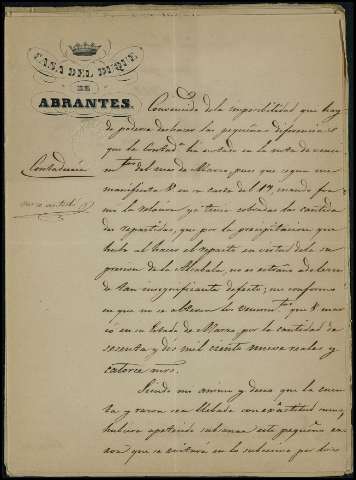 CASA DEL DUQUE
DE
ABRANTES.
Contaduría
Convencido de la imposibilidad que hay
de poderse deshacer las pequeñas diferencias
que la Contad.ª ha notado en la nota de venci-
m.tos del mes de Marzo, pues que segun me
manifiesta V. en su carta del 17, cuando for-
mó la relacion ya tenia cobradas las cantida-
des repartidas, que por la precipitacion que
hubo al hacer el reparto en vista de la su-
presion de la Alcabala, no es estraño adolezca
de tan insignificante defecto; me conformo
en que no se alteren los vencim.tos que V. mar-
có en su Estado de Marzo por la cantidad de
sesenta y dos mil ciento nueve reales y
catorce mrs.
Siendo mi ánimo y deseo que la cuen-
ta y razon sea llebada con exactitud suma,
hubiera apetecido subsanar este pequeño er-
ror que se evitará en lo subcesivo por